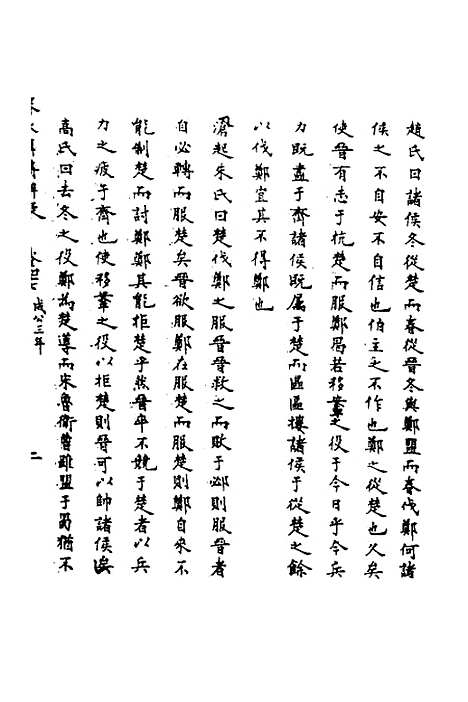 趙氏曰諸侯冬從楚而春從晉冬與鄭盟而春伐鄭何諸
侯之不自安不自信也伯主之不作也鄭之從楚也久矣
使晉有志于抗楚而服鄭曷若移鞌之役于今日乎今兵
力既盡于齊諸侯既屬于楚而區區摟諸侯于從楚之餘
以伐鄭宜其不得鄭也
滄起朱氏曰楚伐鄭之服晉晉救之而敗于邲則服晉者
自必轉而服楚矣晉欲服鄭在服楚而服楚則鄭自來不
能制楚而討鄭鄭其能拒楚乎然晉卒不競于楚者以兵
力之疲于齊也使移鞌之役以拒楚則晉可以帥諸侯矣
高氏曰去冬之役鄭為楚導而宋魯衛曹雖盟于蜀猶不
成公三年
二